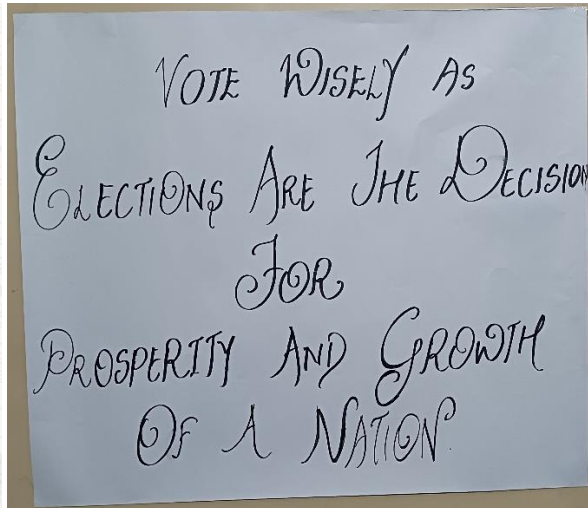 Vote Wisely As
Elections Are The Decision
For
Prosperity And Growth
Of A Nation.